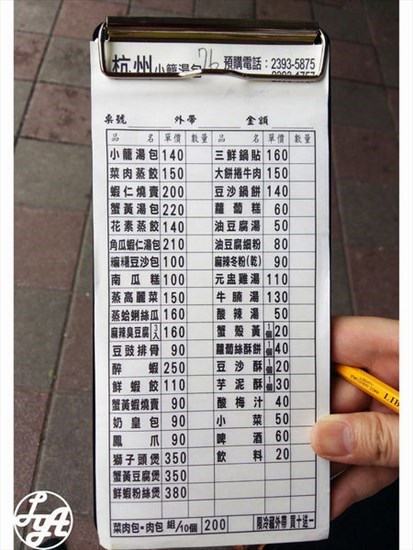 杭州小籠湯包 76 預購電話:2393-5875
桌號 外帶 金額
品名 單價 數量 品名 單價 數量
小籠湯包 140 三鮮鍋貼 160
菜肉蒸餃 150 大餅捲牛肉 150
蝦仁燒賣 200 豆沙鍋餅 140
蟹黃湯包 220 蘿蔔糕 60
花素蒸餃 140 油豆腐湯 50
角瓜蝦仁湯包 210 油豆腐細粉 80
豆沙包 100 麻辣冬粉(乾) 90
南瓜糕 100 元盅雞湯 110
蒸高麗菜 150 牛腩湯 130
蒸蛤蜊絲瓜 160 酸辣湯 50
麻辣臭豆腐 3入 160 蟹殼黃 1個 20
豆豉排骨 90 蘿蔔絲酥餅 1個 40
醉蝦 250 豆沙酥 1個 20
鮮蝦餃 110 芋泥酥 1個 30
蟹黃蝦燒賣 90 酸梅汁 40
奶皇包 90 小菜 50
鳳爪 90 啤酒 60
獅子頭煲 350 飲料 20
蟹黃豆腐煲 350
鮮蝦粉絲煲 380
菜肉包·肉包 組/10個 200 限冷藏外帶 買十送一
LYA